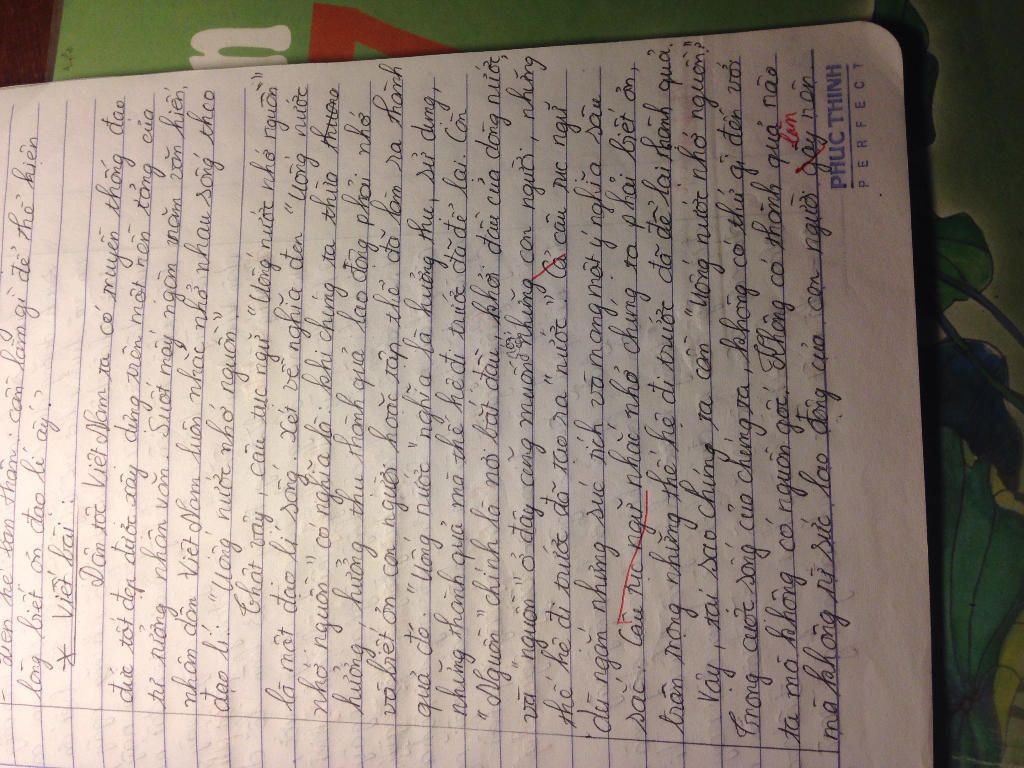 liên hệ bản thân: cần làm gì để thể hiện
lòng biết ơn đạo lí ấy?
* Viết bài:
Dân tộc Việt Nam ta có truyền thống đạo
đức tốt đẹp được xây dựng trên một nền tảng của
tư tưởng nhân văn. Suốt mấy ngàn năm văn hiến,
nhân dân Việt Nam luôn nhắc nhở nhau sống theo
đạo lí: "Uống nước nhớ nguồn"
Thật vậy, câu tục ngữ "Uống nước nhớ nguồn"
là một đạo lí sống xét về nghĩa đen "Uống nước
nhớ nguồn" có nghĩa là khi chúng ta thừa
hưởng, hưởng thụ thành quả lao động phải nhớ
và biết ơn con người hoặc tập thể đã làm ra thành
quả đó. "Uống nước" nghĩa là hưởng thụ, sử dụng,
những thành quả mà thế hệ đi trước đã để lại. Còn
"Nguồn" chính là nơi bắt đầu, khởi đầu của dòng nước,
và "nguồn" ở đây cũng muốn nói đến những con người, những
thế hệ đi trước đã tạo ra "nước". Cả câu tục ngữ
dù ngắn nhưng súc tích và mang một ý nghĩa sâu
sắc. Câu tục ngữ nhắc nhở chúng ta phải biết ơn,
trân trọng những thế hệ đi trước đã để lại thành quả.
Vậy, tại sao chúng ta cần "Uống nước nhớ nguồn"?
Trong cuộc sống của chúng ta, không có thứ gì đến với
ta mà không có nguồn gốc. Không có thành quả nào
làm
mà không từ sức lao động của con người gây nên
PHUC THINH
PERFECT
n
7